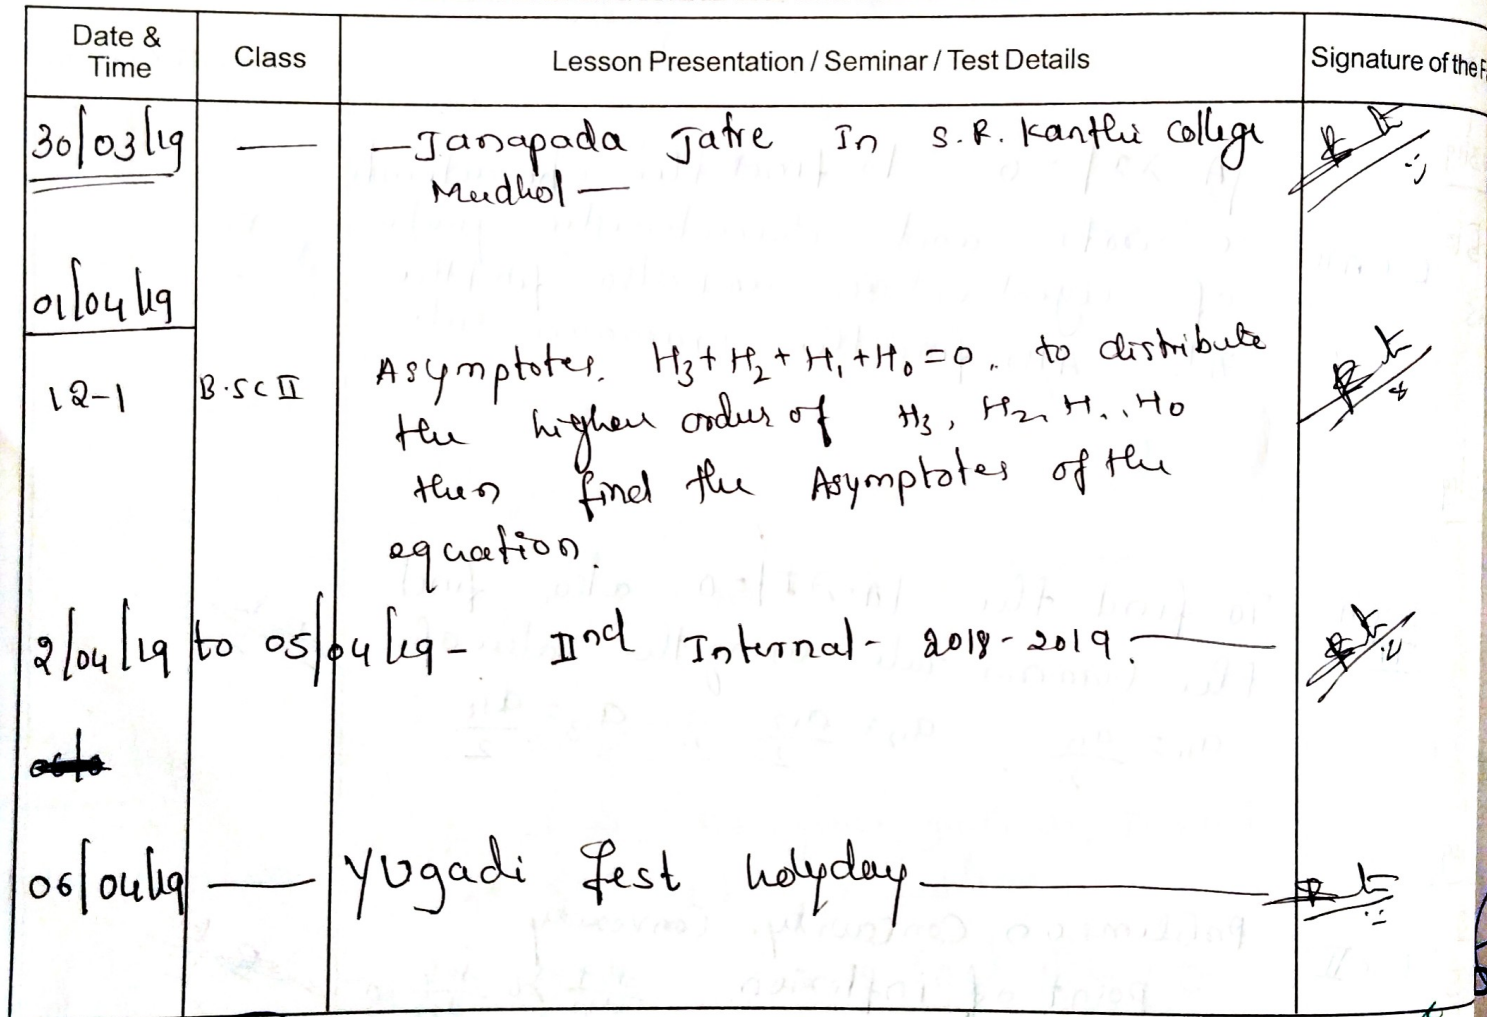 Date & Time Class Lesson Presentation / Seminar / Test Details Signature of the
30/03/19 — — Janapada Jatre In S.R. Kanthi College
Mudhol —
01/04/19
12-1 B.Sc II Asymptotes. H₃+H₂+H₁+H₀=0. to distribute
the higher order of H₃, H₂, H₁, H₀
then find the Asymptotes of the
equation.
2/04/19 to 05/04/19 - IInd Internal - 2018-2019. —
06/04/19 — Yugadi fest holyday —